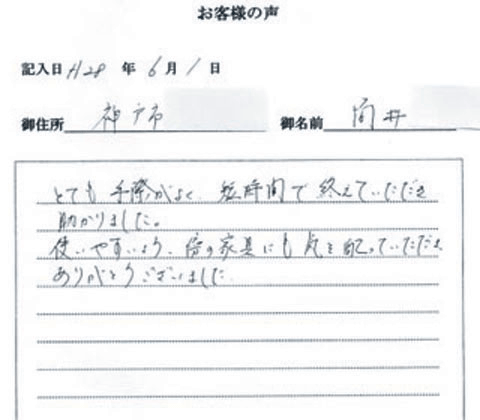 お客様の声
記入日 H28 年 6 月 1 日
御住所 神戸市 御名前 筒井
とても 手際がよく、短時間で 終えていただき
助かりました。
使いやすいよう、他の家具にも 気を配っていただき
ありがとうございました